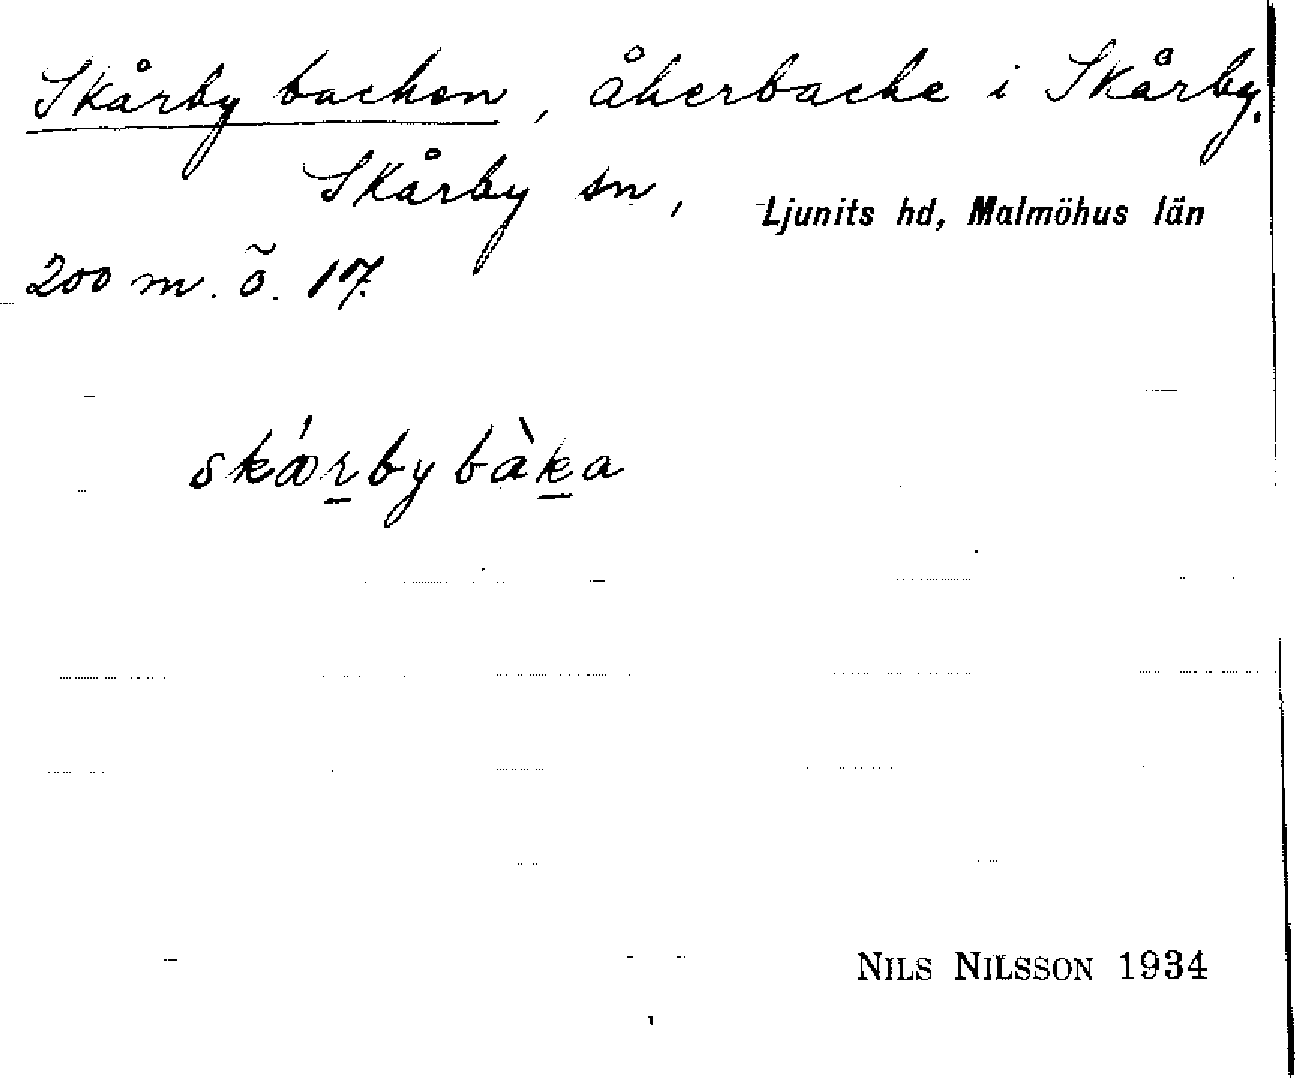 Skårby backen, åkerbacke i Skårby.
Skårby sn, Ljunits hd, Malmöhus län
200 m. ö. 17.
skǽr̲bybàk̲a
NILS NILSSON 1934